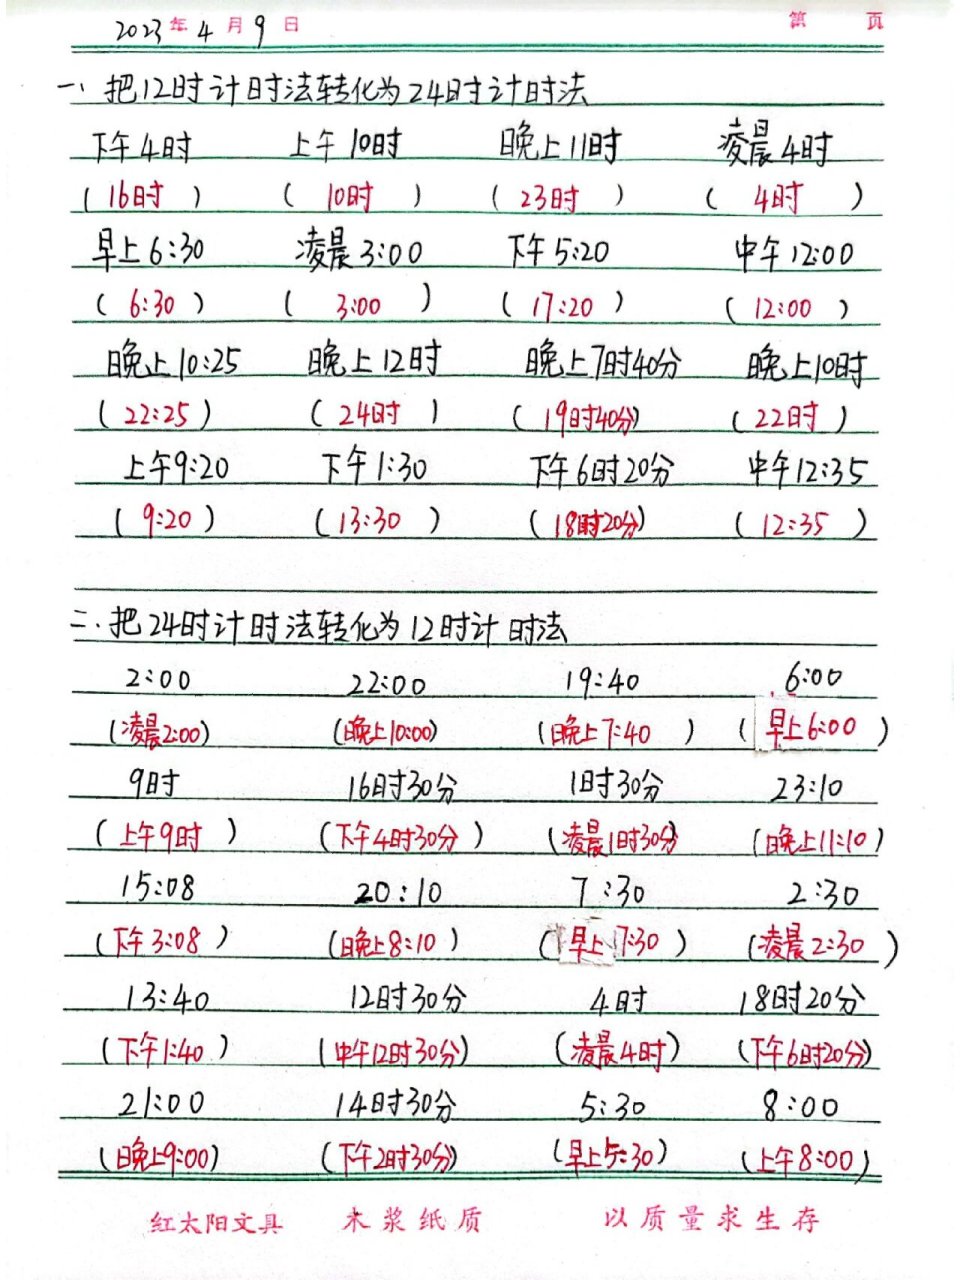 2023年4月9日 第 页
一、把12时计时法转化为24时计时法
下午4时 上午10时 晚上11时 凌晨4时
(16时) (10时) (23时) (4时)
早上6:30 凌晨3:00 下午5:20 中午12:00
(6:30) (3:00) (17:20) (12:00)
晚上10:25 晚上12时 晚上7时40分 晚上10时
(22:25) (24时) (19时40分) (22时)
上午9:20 下午1:30 下午6时20分 中午12:35
(9:20) (13:30) (18时20分) (12:35)
二、把24时计时法转化为12时计时法
2:00 22:00 19:40 6:00
(凌晨2:00) (晚上10:00) (晚上7:40) (早上6:00)
9时 16时30分 1时30分 23:10
(上午9时) (下午4时30分) (凌晨1时30分) (晚上11:10)
15:08 20:10 7:30 2:30
(下午3:08) (晚上8:10) (早上7:30) (凌晨2:30)
13:40 12时30分 4时 18时20分
(下午1:40) (中午12时30分) (凌晨4时) (下午6时20分)
21:00 14时30分 5:30 8:00
(晚上9:00) (下午2时30分) (早上5:30) (上午8:00)
红太阳文具 木浆纸质 以质量求生存